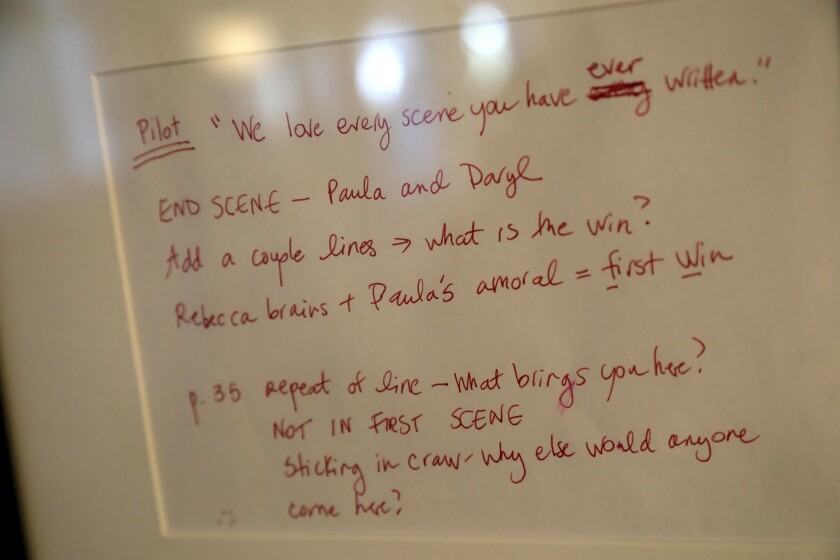 Pilot "We love every scene you have ever written."
END SCENE – Paula and Daryl
Add a couple lines → what is the win?
Rebecca brains + Paula's amoral = first win
p. 35 repeat of line – What brings you here?
NOT IN FIRST SCENE
Sticking in craw - why else would anyone
come here?